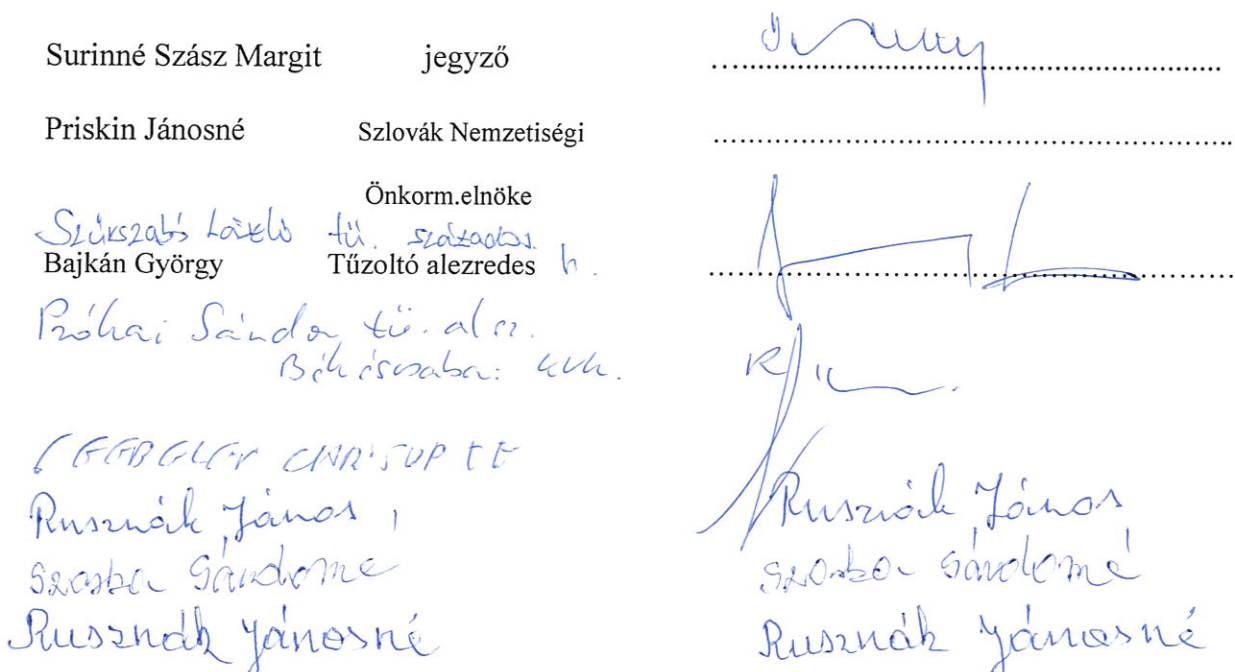 Surinné Szász Margit jegyző
Priskin Jánosné Szlovák Nemzetiségi
Önkorm.elnöke
Szűkszabó László tű. százados.
Bajkán György Tűzoltó alezredes h.
Prókai Sándor tű. alez.
Békéscsaba: kvk.
Rusznák János, Rusznák János
Szoszba Sándorné Szoszba Sándorné
Rusznák Jánosné Rusznák Jánosné